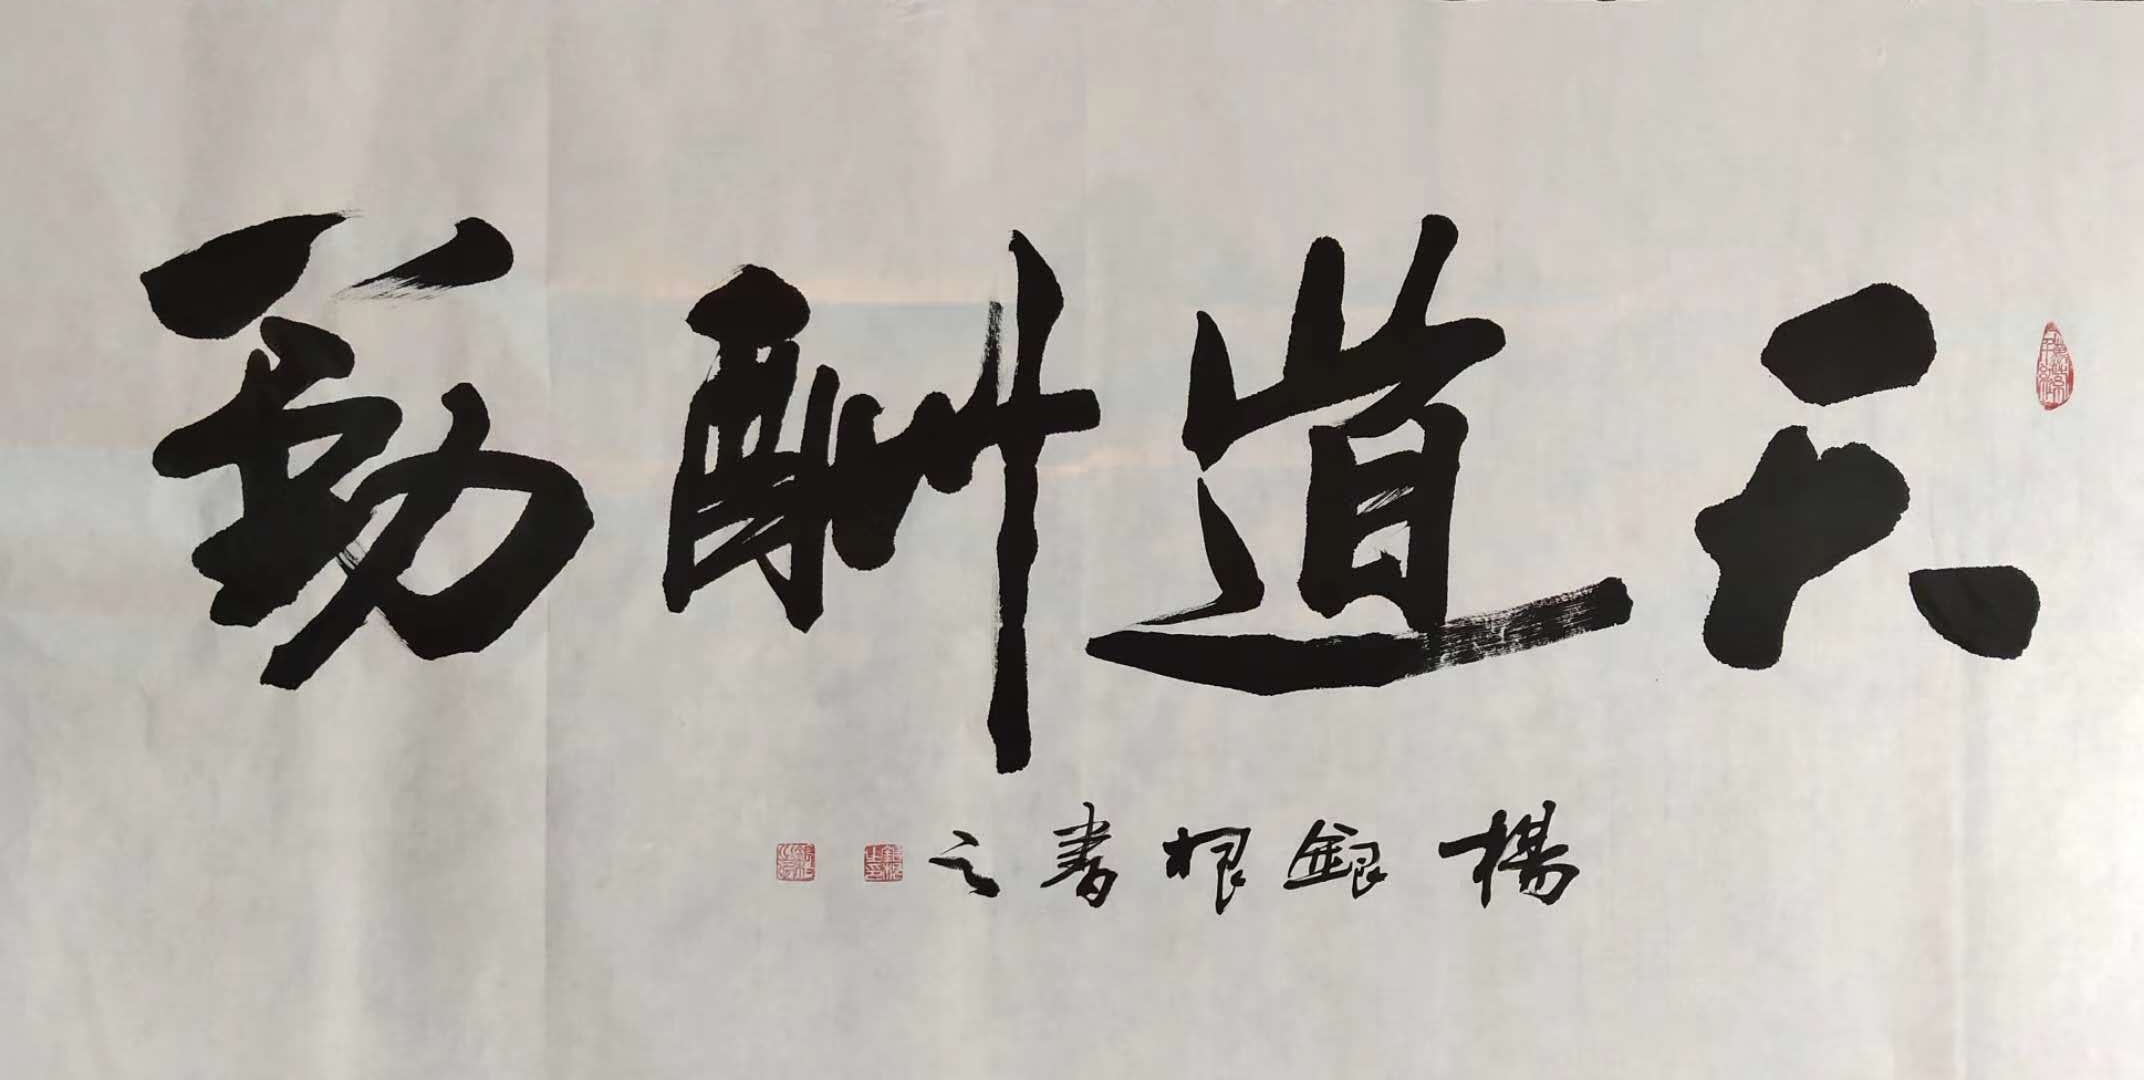 天道酬勤
楊銀根書之